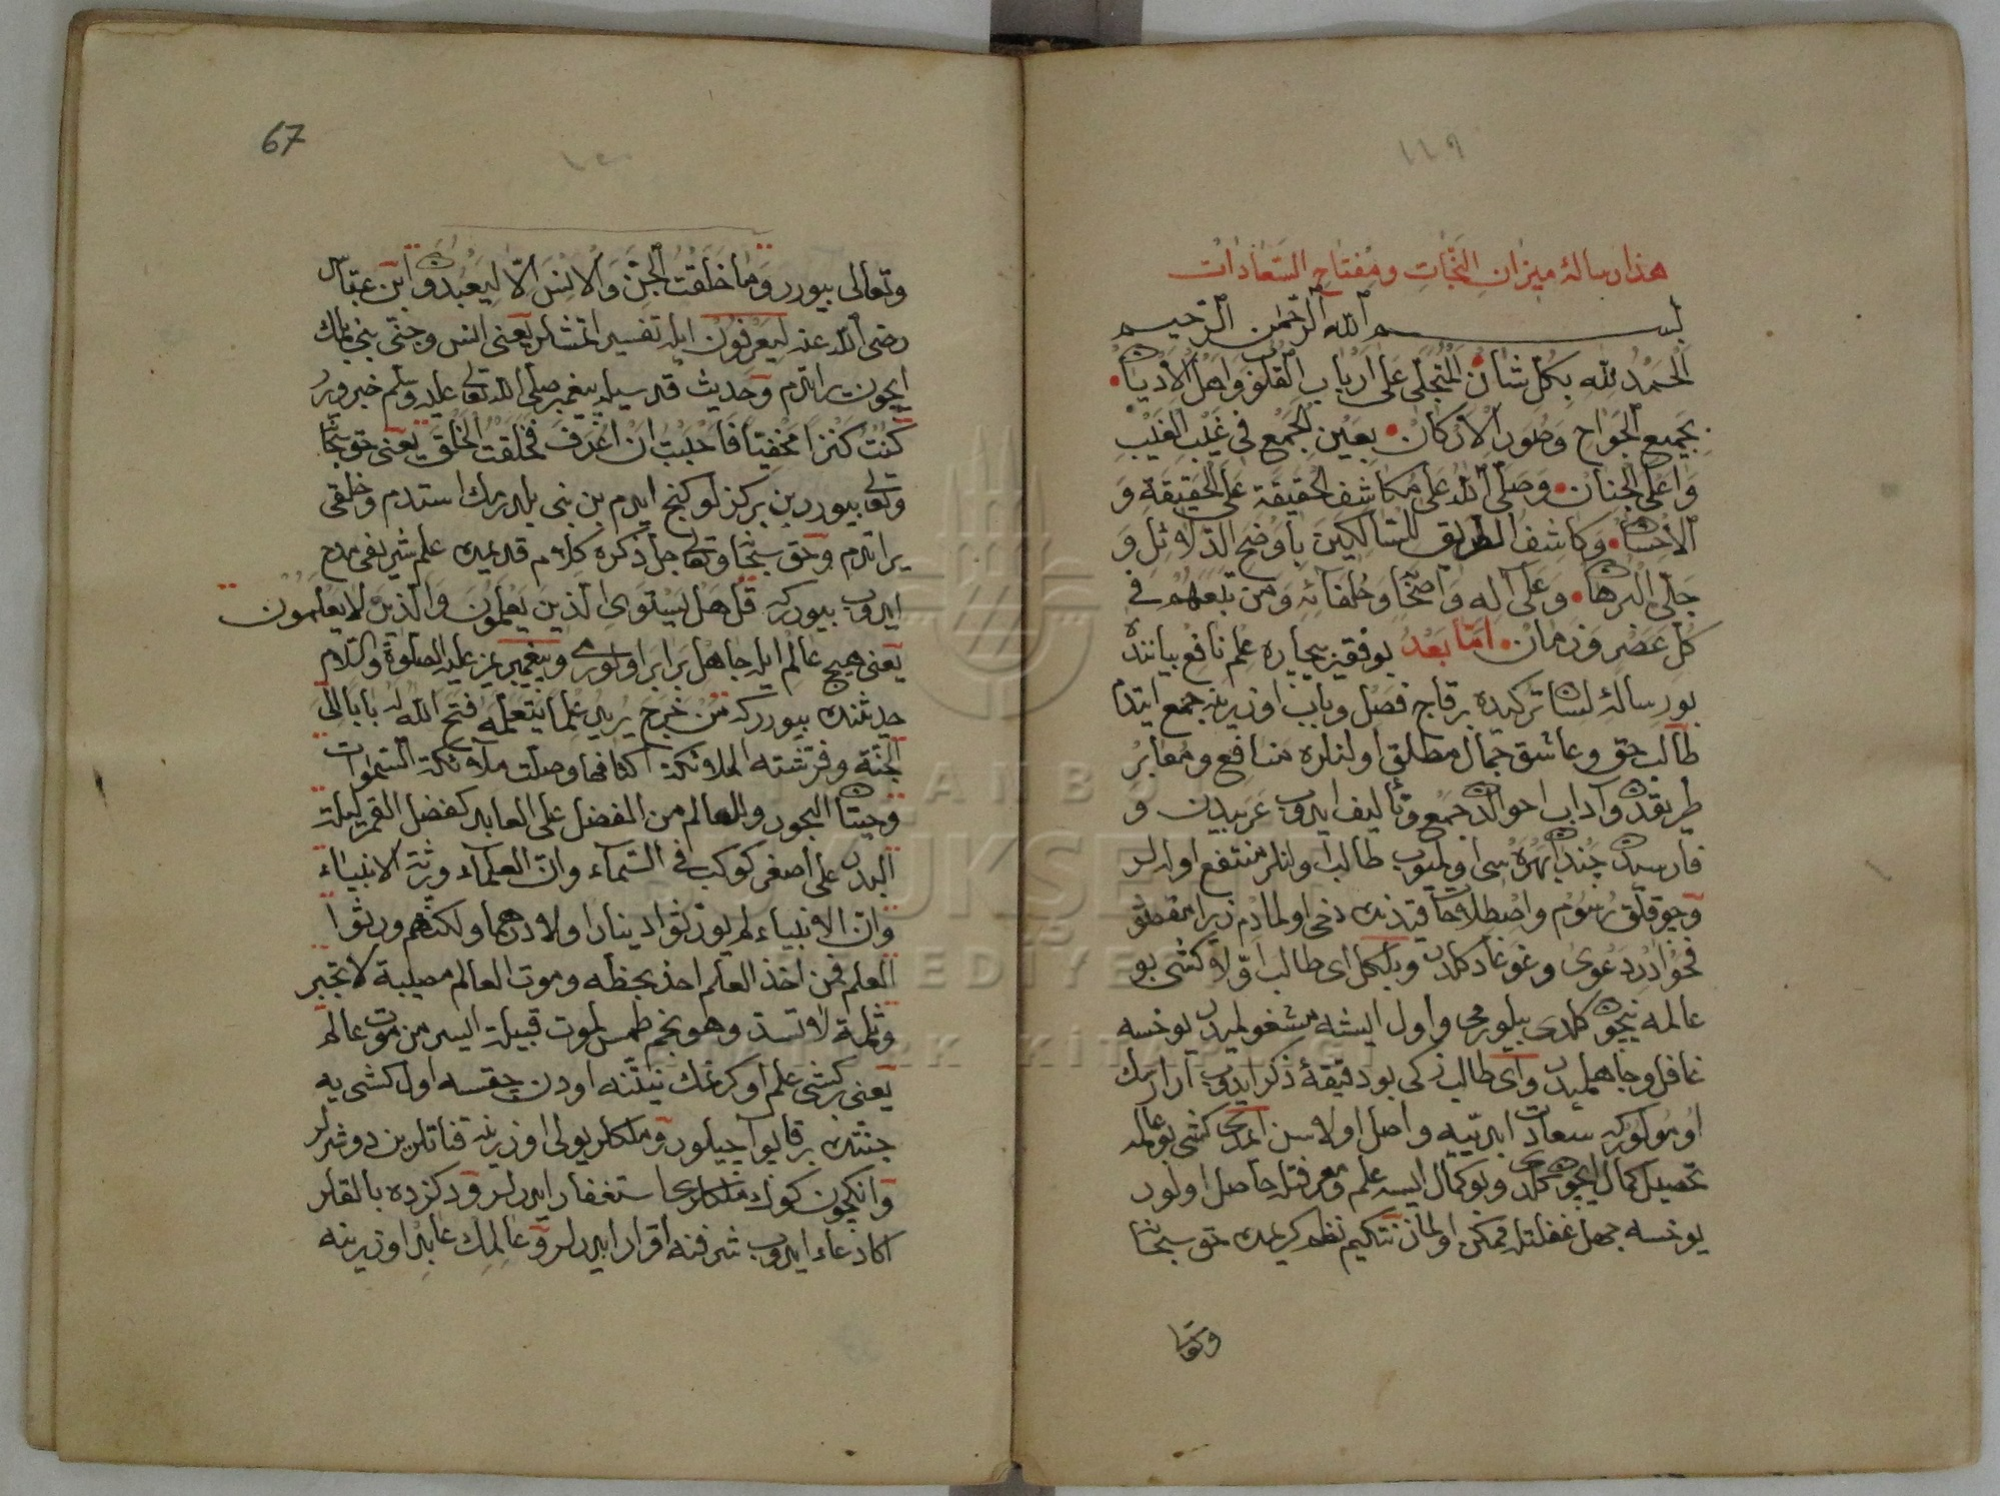 ١١٩
هذا رسالۀ ميزان النجات ومفتاح السعادات
بسم الله الرحمن الرحيم
الحمد لله بكل شان المتجلى على ارباب القلوب واهل الاديان
بجميع الجوارح وطور الاركان بعين الجمع فى غيب الغيب
واعلى الجنان وصلى الله على مكاشف الحقيقة على الحقيقة و
الاحسان وكاشف الطريق للسالكين باوضح الدلائل و
جلى البرهان وعلى آله واصحابه وخلفائه ومن تبعهم فى
كل عصر وزمان اما بعد بو فقير بيچاره علم نافع بياننده
بو رسالۀ لسان تركيده برقاج فصل وباب اوزرينه جمع ايتدم
طالب حق وعاشق جمال مطلق اولنلره منافع ومعابر
طريقدن وآداب احوالدن جمع وتأليف ايدوب عربيدن و
فارسيدن چندان بهره سى اولميوب طالب اولنلر منتفع اوله لر
وچوقلق رسوم واصطلاحات قيدنده دخى اولمادم زيرا
دعوى وغوغادر كلدى وبلكل اى طالب اولا كشى بو
عالمه نيچون كلدى بيلورمى واول ايشه مشغولميدر يوخسه
غافل وجاهلميدر واى طالب زكى بو دقيقۀ ذكر ايدوب آرارمك
اومولور كه سعادت ابديّيه واصل اولاسن ايمدى كشى بو عالمه
تحصيل كمال ايچون كلدى وبو كمال ايسه علم ومعرفتله حاصل اولور
يوخسه جهل غفلتله ممكن اولماز نتكيم نظم كريمك حق سبحانه
وتعالى
67
وتعالى بيورر وما خلقت الجن والانس الا ليعبدون ابن عباس
رضى الله عنه ليعرفون ايله تفسير اتمشلر يعنى انس وجنى بنى بلمك
ايچون يراتدم وحديث قدسيله پيغمبر صلى الله تعالى عليه وسلم خبر ويرر
كنت كنزا مخفيا فاحببت ان اعرف فخلقت الخلق يعنى حق سبحانه
وتعالى بيورر بن بر كزلو كنج ايدم بن بنى بلدرمك استدم وخلقى
يراتدم وحق سبحانه وتعالى جل ذكره كلام قديمنده علم شريفى مدح
ايدوب بيورر كه قل هل يستوى الذين يعلمون والذين لا يعلمون
يعنى هيچ عالم ايله جاهل برابر اولورمى وپيغمبريمز عليه الصلوة والسلام
حديثنده بيورر كه من خرج يريد علما يتعلمه فتح الله له بابا الى
الجنة وفرشته الملائكة اكنافها وصلت ملائكة السموات
وحيتان البحور وللعالم من الفضل على العابد كفضل القمر ليلة
البدر على اصغر كوكب فى السماء وان العلماء ورثة الانبياء
وان الانبياء لم يورثوا دينارا ولا درهما ولكنهم ورثوا
العلم فمن اخذ العلم اخذ بحظه وموت العالم مصيبة لا تجبر
وثلمة لا تسد وهو نجم طمس لموت قبيلة ايسر من موت عالم
يعنى بر كشى علم اوكرنمك نيتنه اودن چقسه اول كشى يه
جنتدن بر قاپو آچيلور وملكلر يولى اوزرينه قناتلرين دوشرلر
وانكچون كوك ملكلرى استغفار ايدرلر ودكزده بالقلر
اكا دعاء ايدوب شرفنه اقرار ايدرلر وعالمك عابد اوزرينه